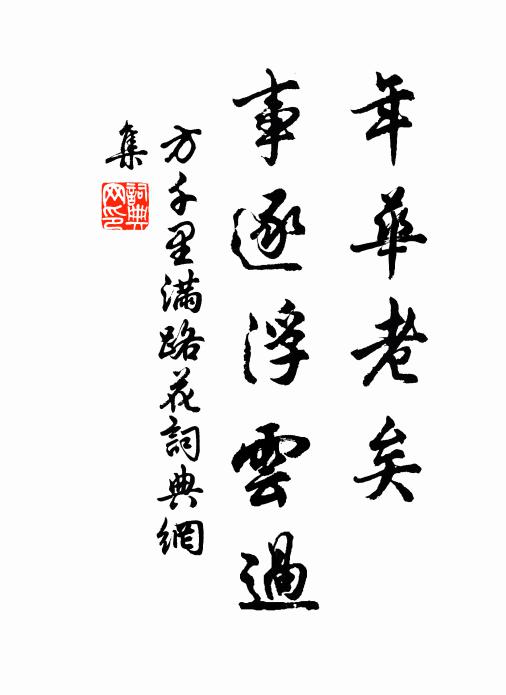 年華老矣
事逐浮雲過
方千里滿路花詞典網
集
詞典
网印